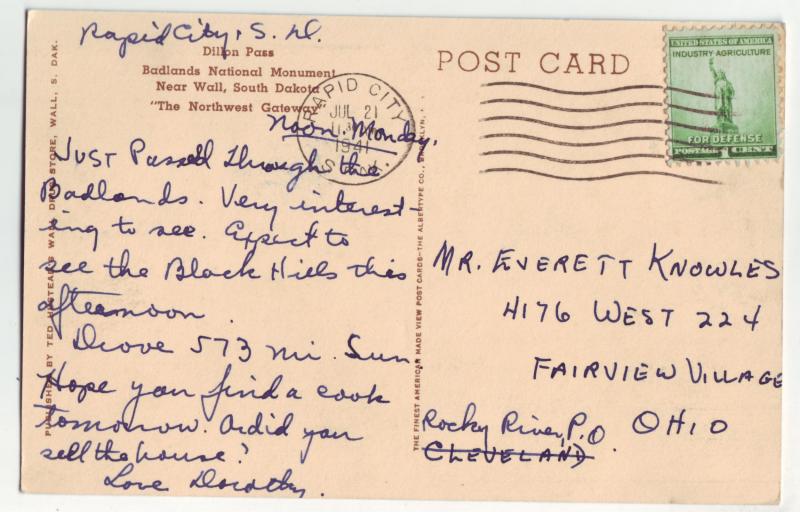 Rapid City, S. D.
Dillon Pass
Badlands National Monument
Near Wall, South Dakota
"The Northwest Gateway"
Noon. Monday,
Just Passed through the
Badlands. Very interest-
ing to see. Expect to
see the Black Hills this
afternoon.
Drove 573 mi. Sun.
Hope you find a cook
tomorrow. Or did you
sell the house?
Love Dorothy.
PUBLISHED BY TED HUSTEAD'S WALL DRUG STORE, WALL, S. DAK.
THE FINEST AMERICAN MADE VIEW POST CARDS—THE ALBERTYPE CO., BROOKLYN, N. Y.
POST CARD
RAPID CITY
JUL 21
1941
S. DAK.
UNITED STATES OF AMERICA
INDUSTRY AGRICULTURE
FOR DEFENSE
POSTAGE 1 CENT
MR. EVERETT KNOWLES
4176 WEST 224
FAIRVIEW VILLAGE
Rocky River, P.O. OHIO
CLEVELAND